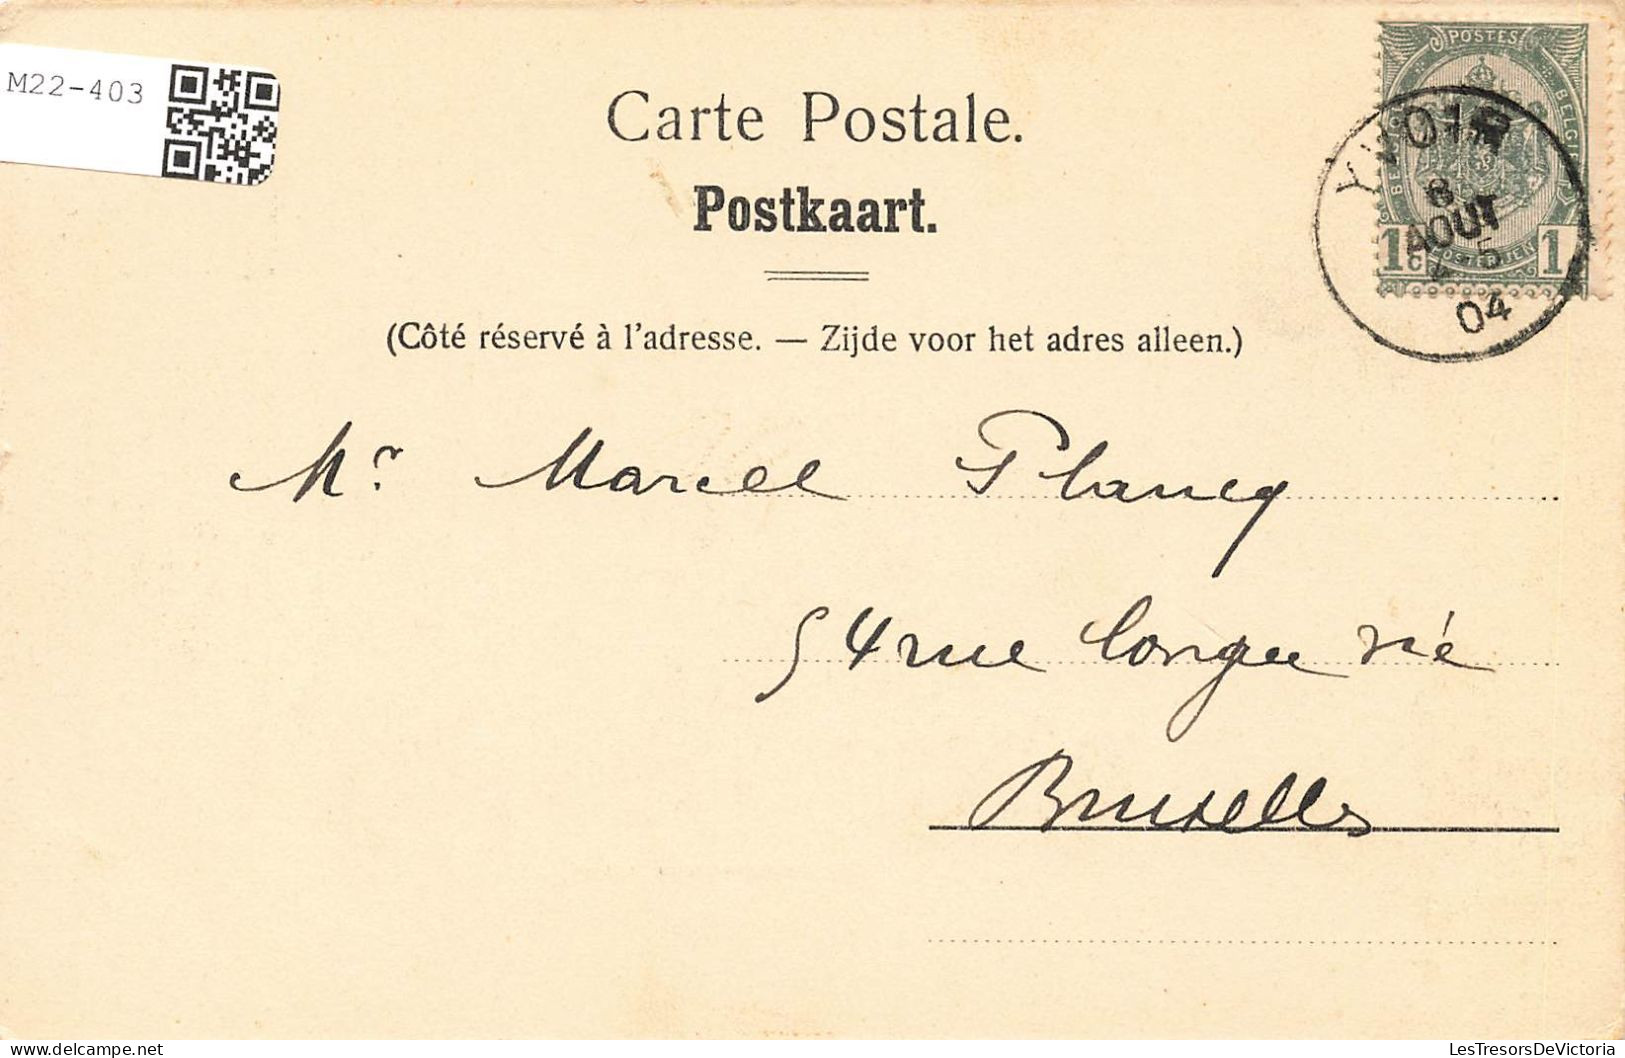 M22-403
Carte Postale.
Postkaart.
POSTES
BELGIQUE
BELGIË
1c
POSTERIJEN
1
YVOIR
8
AOUT
4-5
04
(Côté réservé à l'adresse. — Zijde voor het adres alleen.)
Mr Marcel Plancq
54 rue longue vie
Bruxelles
LesTresorsDeVictoria